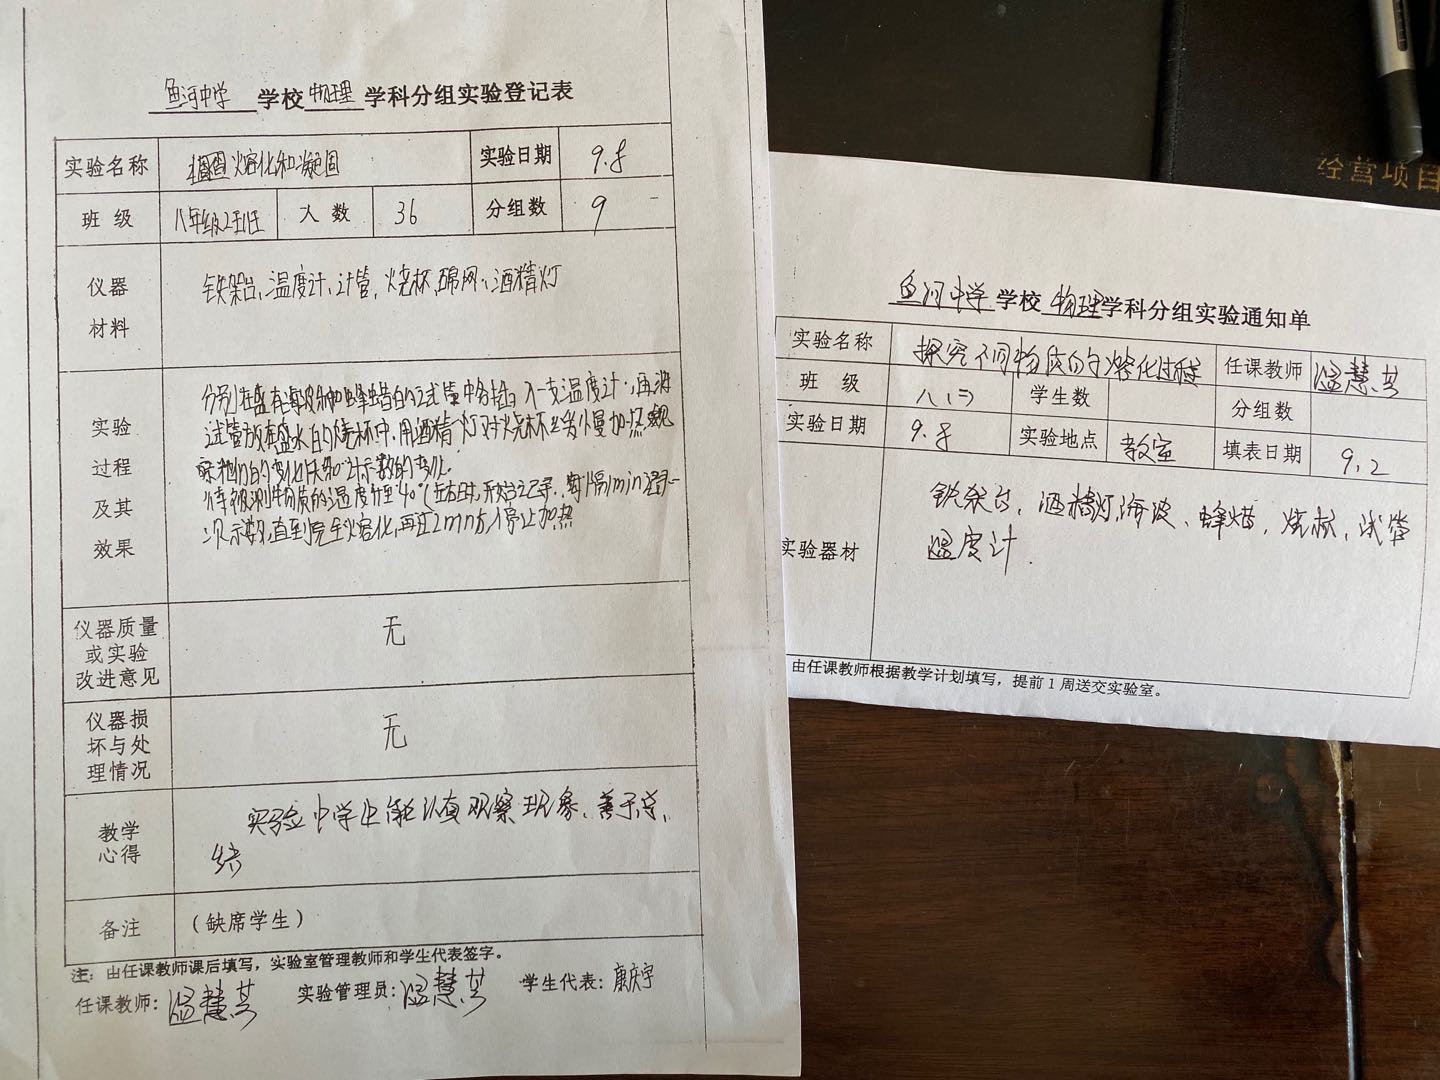 鱼河中学 学校 物理 学科分组实验登记表
实验名称 熔化和凝固 实验日期 9.8
班 级 八年级2班 人 数 36 分组数 9
仪器
材料
铁架台、温度计、试管、烧杯、石棉网、酒精灯
实验
过程
及其
效果
分别在盛有海波和蜂蜡的试管中各插入一支温度计,再将
试管放在盛水的烧杯中,用酒精灯对烧杯缓慢加热,观
察他们的变化
待被测物质的温度升至40°C左右时,开始记录,每隔1min记录一
次示数,直到完全熔化,再过2min,停止加热
仪器质量
或实验
改进意见
无
仪器损
坏与处
理情况
无
教学
心得
实验中学生能认真观察现象、善于总
结
备注 (缺席学生)
注:由任课教师课后填写,实验室管理教师和学生代表签字。
任课教师:温慧芳 实验管理员:温慧芳 学生代表:康庆宇
鱼河中学 学校 物理 学科分组实验通知单
实验名称 探究不同物质的熔化过程 任课教师 温慧芳
班 级 八(二) 学生数 分组数
实验日期 9.8 实验地点 教室 填表日期 9.2
实验器材
铁架台、酒精灯、海波、蜂蜡、烧杯、试管
温度计.
由任课教师根据教学计划填写,提前1周送交实验室。
经营项目